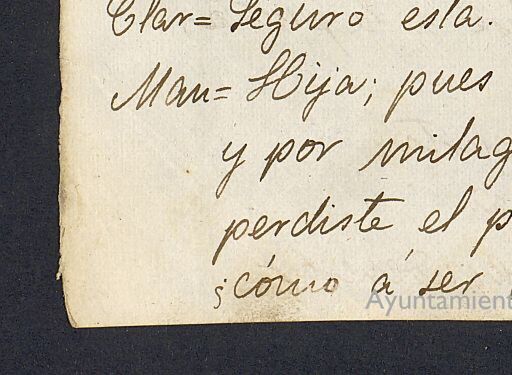 Clar= Seguro esta.
Man= Hija; pues
y por milag
perdiste el p
¿cómo á ser
Ayuntamient